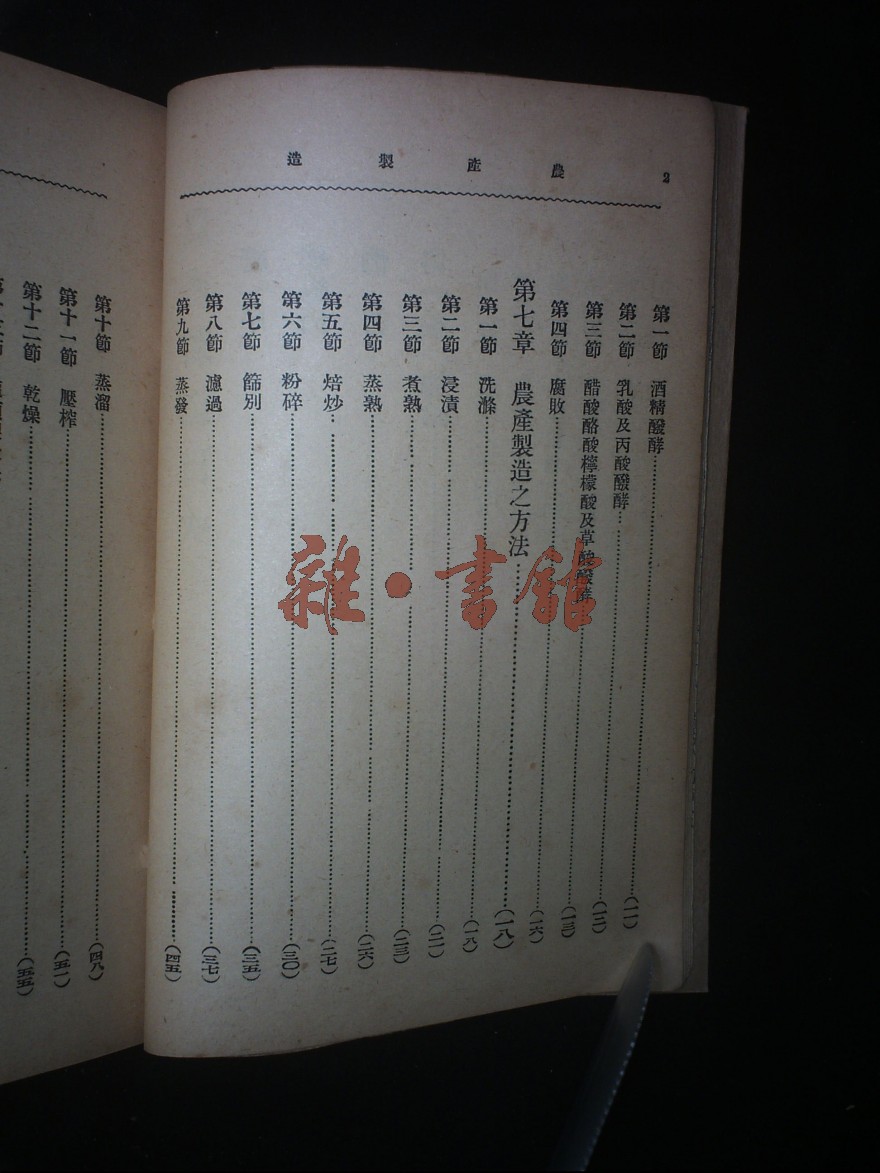 農產製造
2
第一節 酒精醱酵……(一一)
第二節 乳酸及丙酸醱酵……(一一)
第三節 醋酸酪酸檸檬酸及草酸醱酵……(一二)
第四節 腐敗……(一三)
第七章 農產製造之方法……(一八)
第一節 洗滌……(一八)
第二節 浸漬……(二一)
第三節 煮熟……(二三)
第四節 蒸熟……(二六)
第五節 焙炒……(二七)
第六節 粉碎……(三〇)
第七節 篩別……(三五)
第八節 濾過……(三七)
第九節 蒸發……(四五)
第十節 蒸溜……(四八)
第十一節 壓榨……(五一)
第十二節 乾燥……(五五)
雜·書館